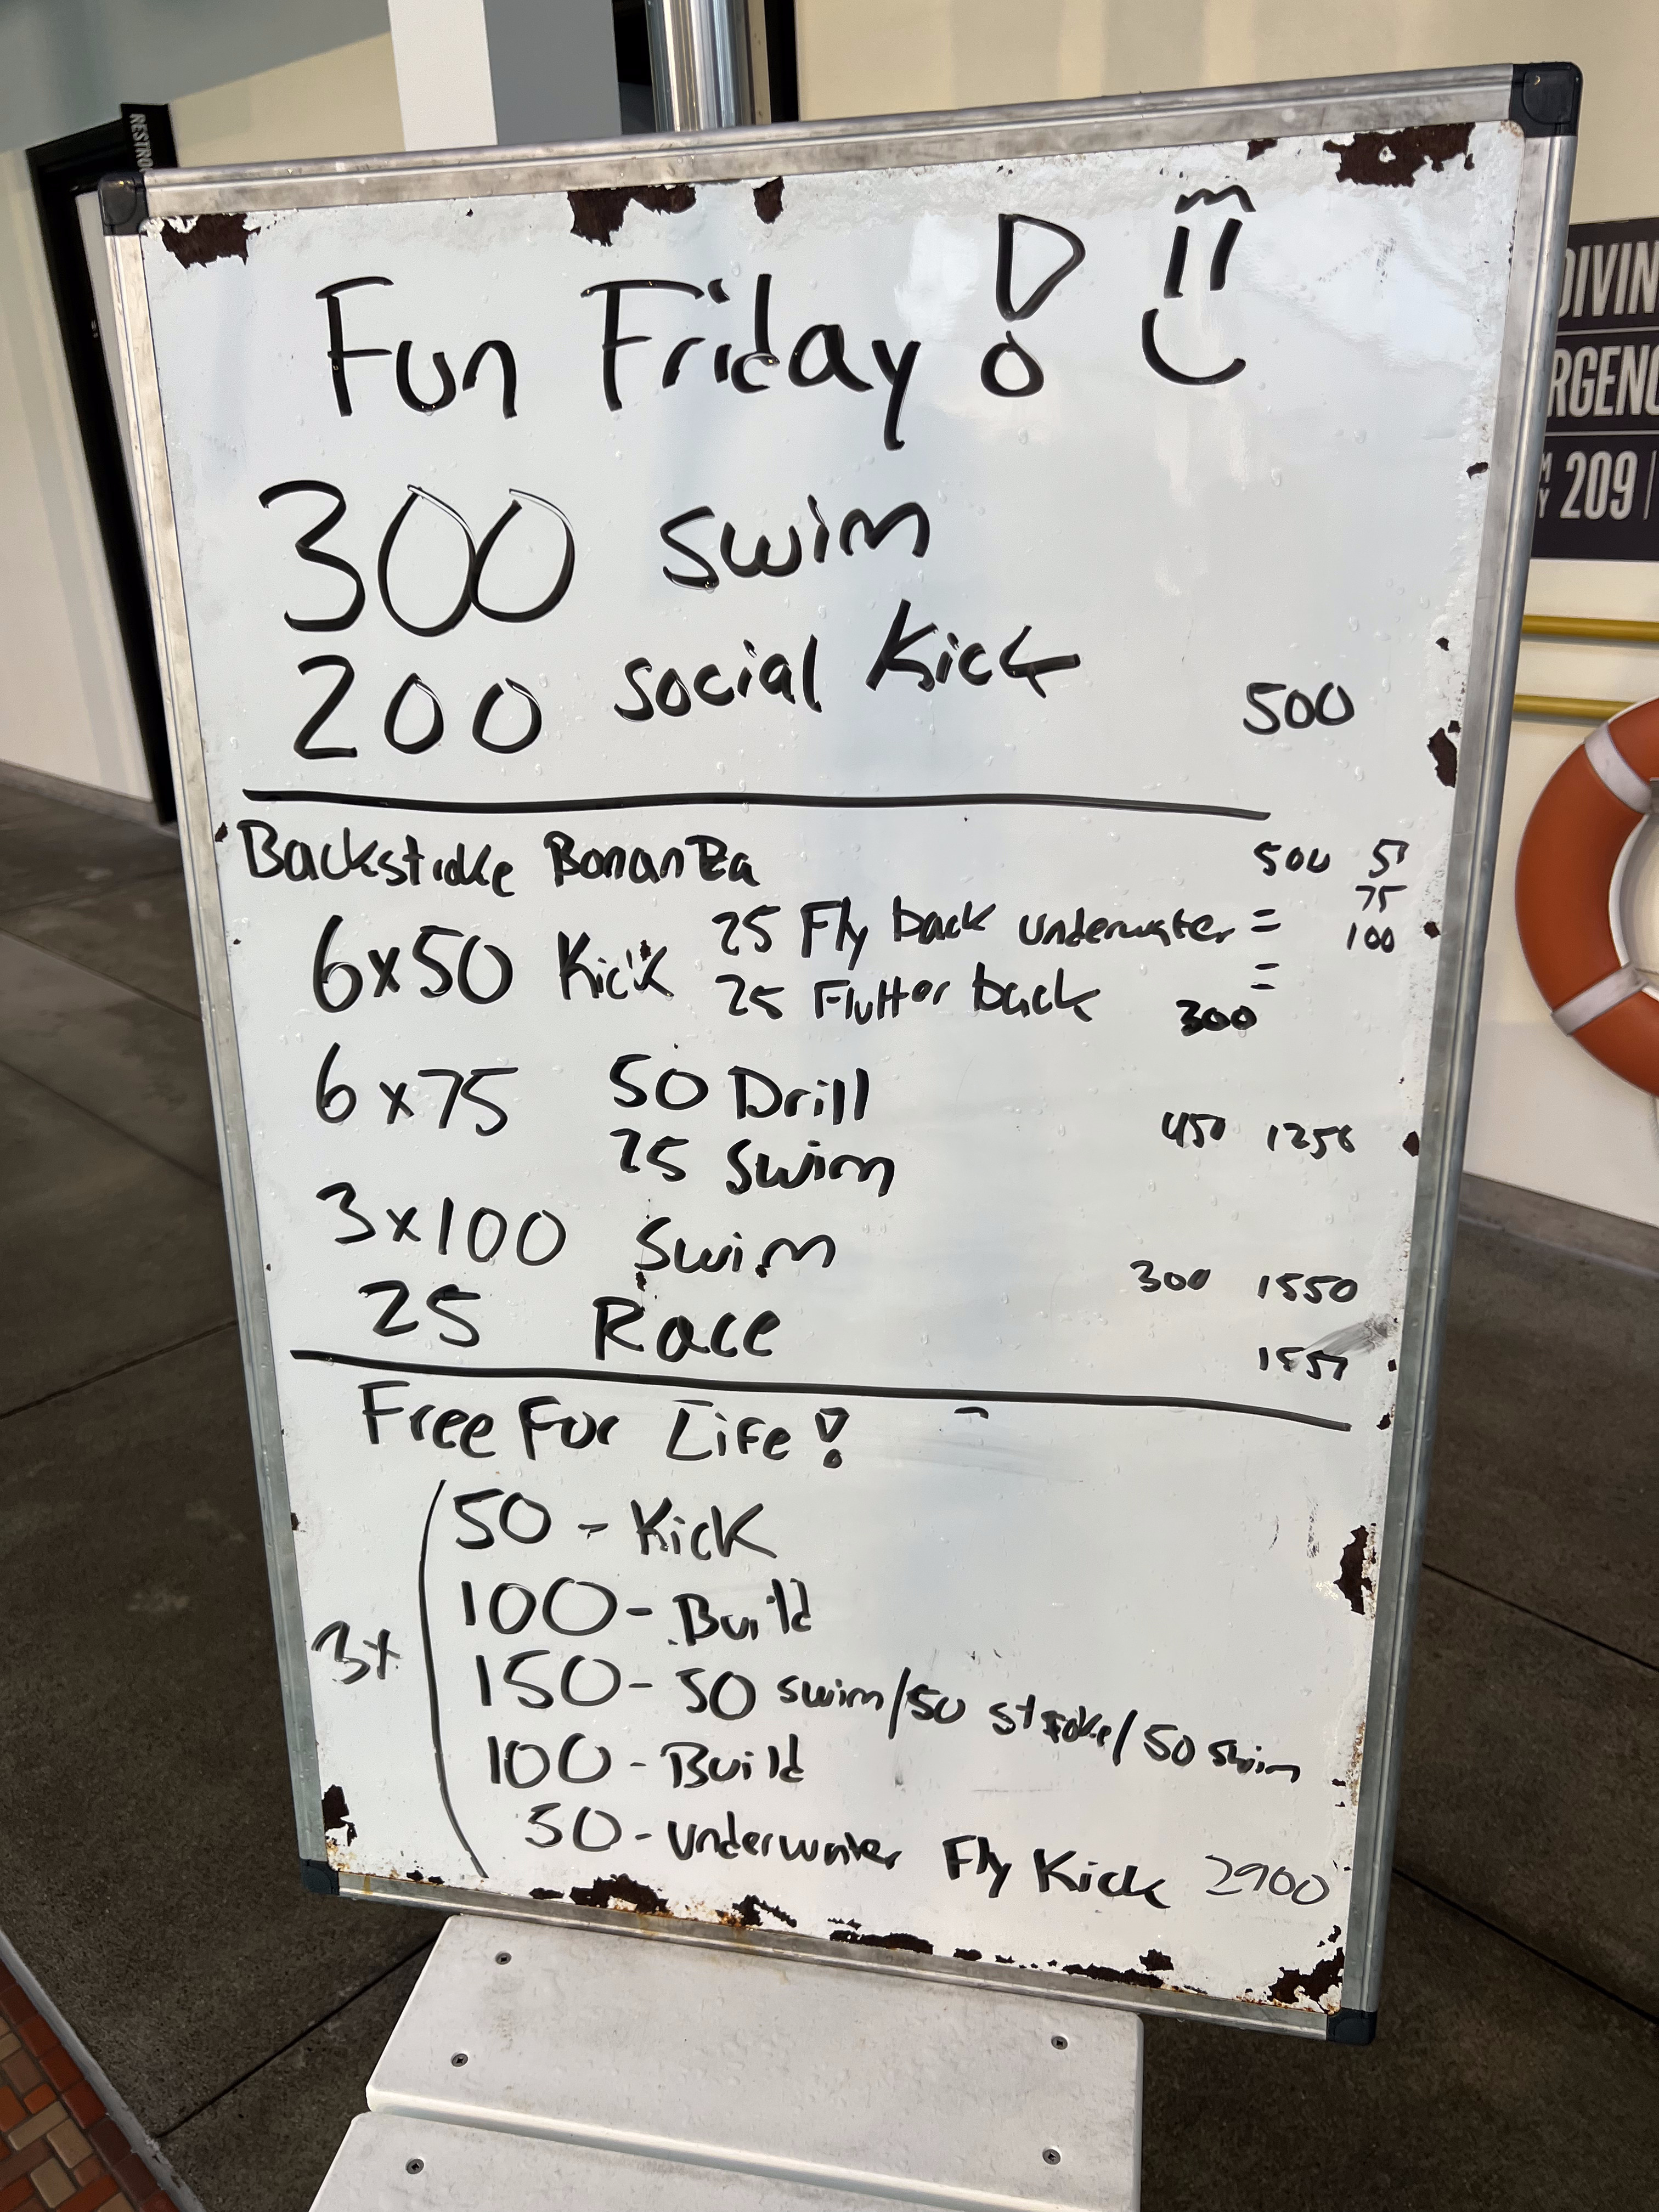 RESTRO
DIVIN
RGENC
209
Fun Friday!
300 swim
200 social Kick
500
Backstroke BonanZa
500 5
75
100
6x50 Kick 25 Fly back underwater =
25 Flutter back =
300
6x75 50 Drill
25 Swim
450 1250
3x100 Swim
300 1550
25 Race
Free For Life!
3x
50 - Kick
100 - Build
150 - 50 swim/50 stroke/50 swim
100 - Build
50 - Underwater Fly Kick 2900